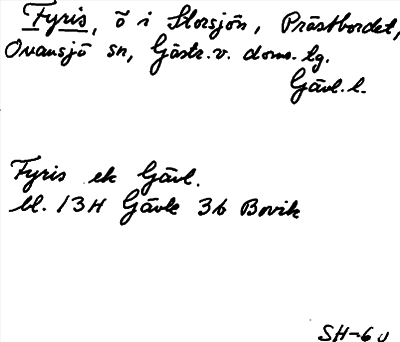 Fyris, ö i Storsjön, Prästbordet,
Ovansjö sn, Gästr.v. doms.tg.
Gävl.l.
Fyris ek Gävl.
bl. 13H Gävle 3b Bovik
SH-6